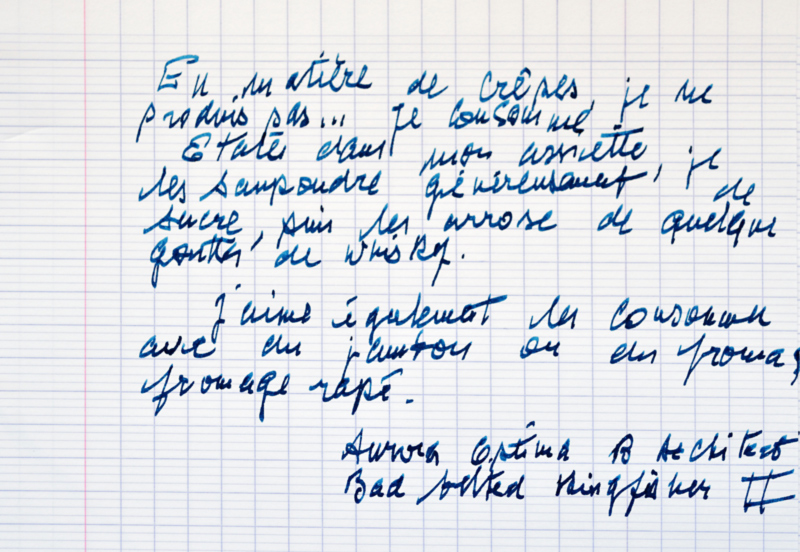 En matière de crêpes, je ne
produis pas... je consomme
Etalés dans mon assiette, je
les saupoudre généreusement, de
sucre, puis les arrose de quelque
gouttes de whisky.
J'aime également les consommer
avec du jambon ou du fromag
fromage rapé.
Aurora Optima B Architect
Bad belted Kingfisher II